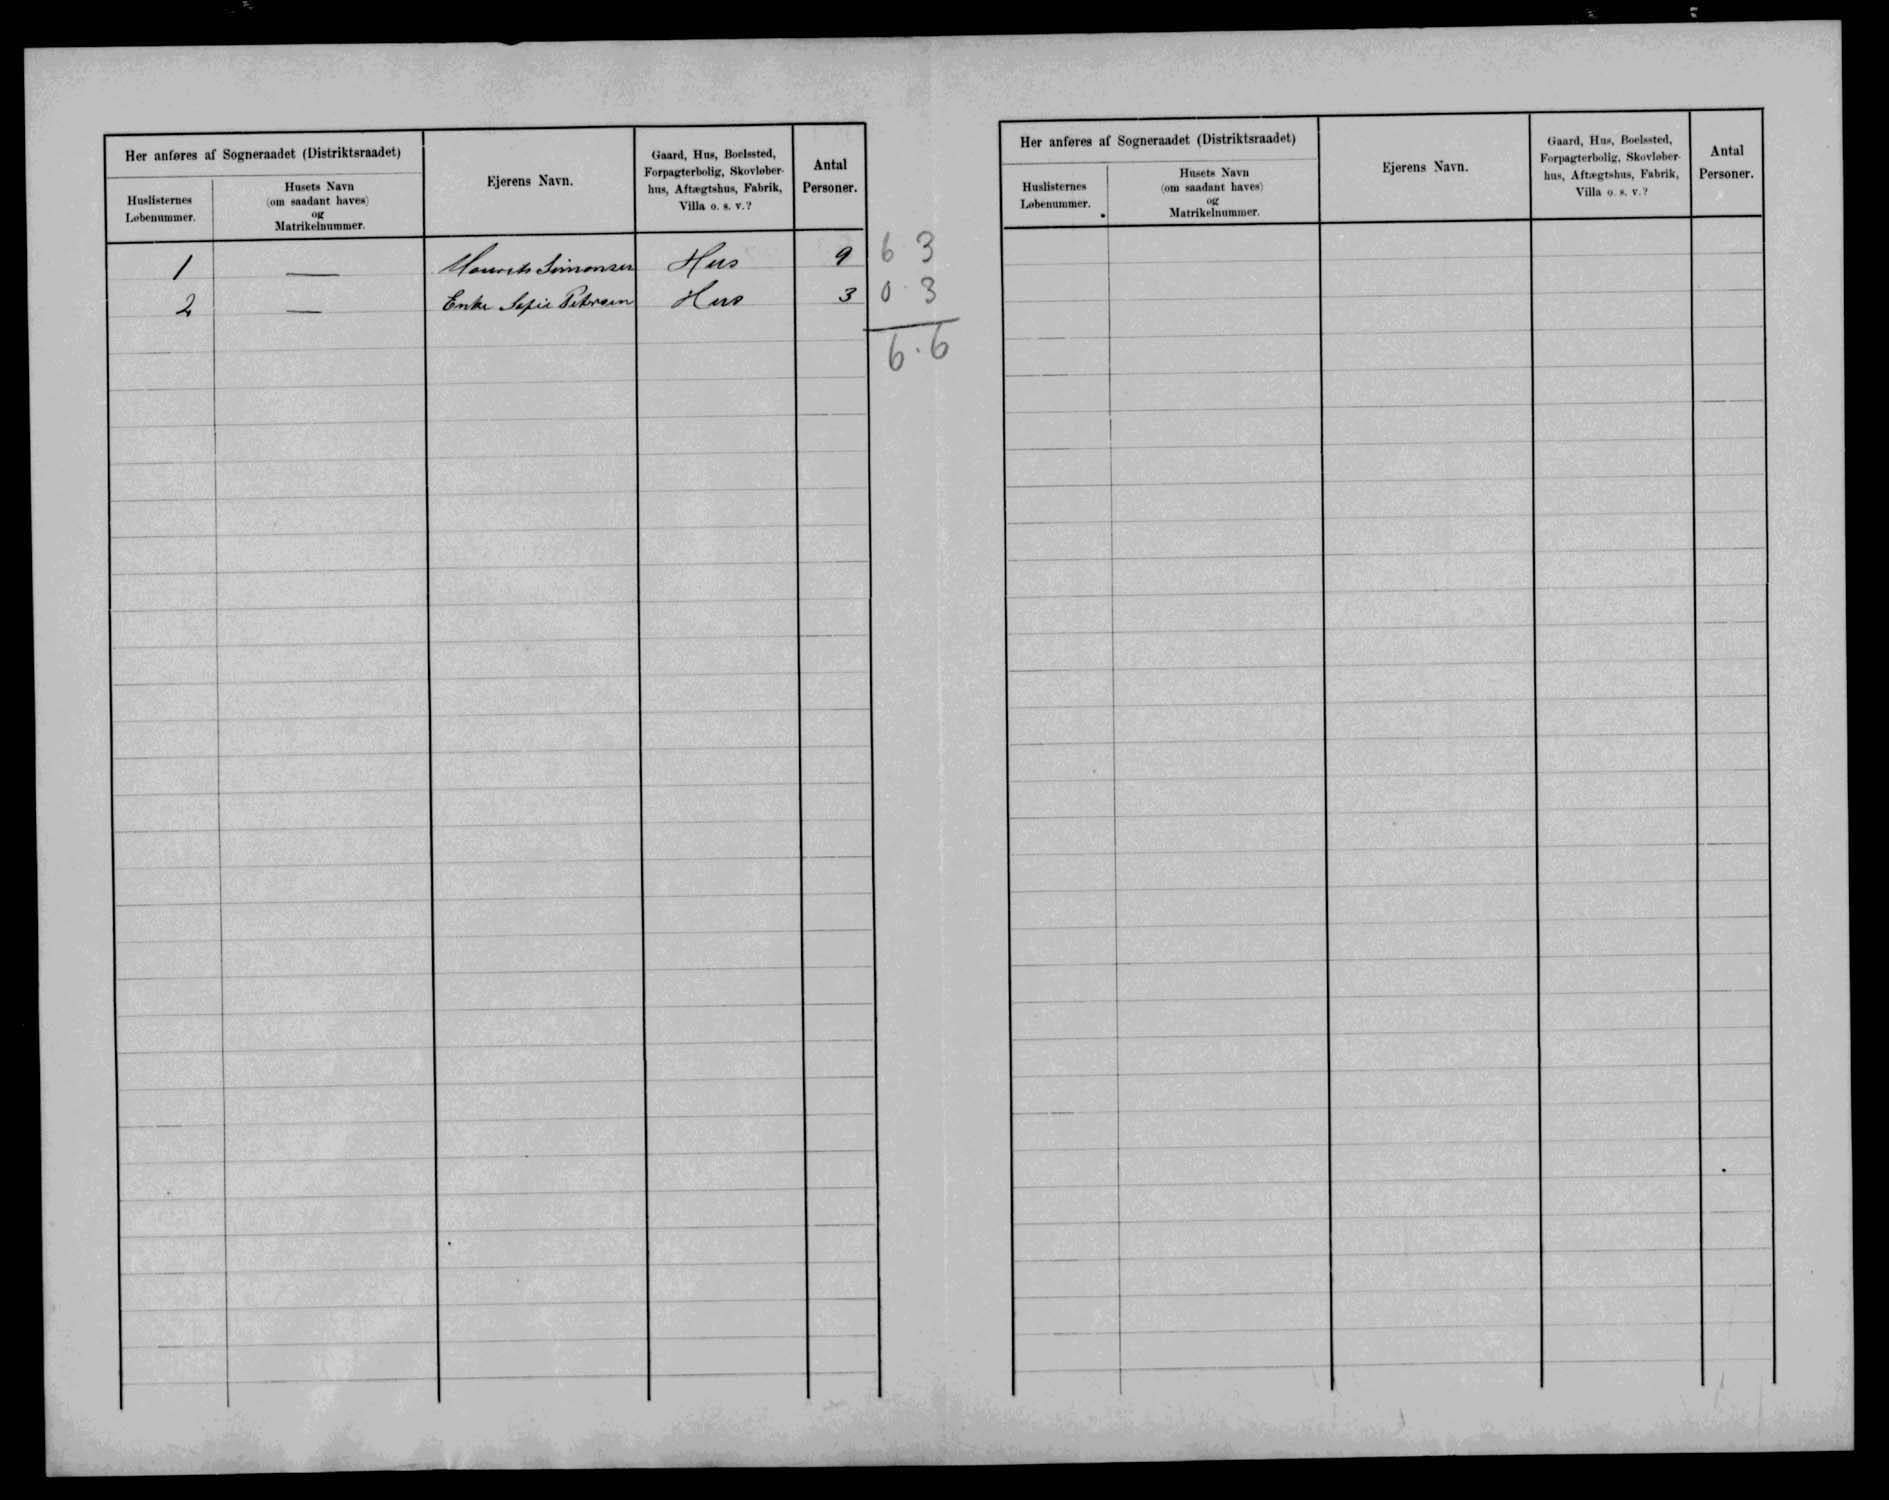 Her anføres af Sogneraadet (Distriktsraadet)
Huslisternes
Løbenummer.
Husets Navn
(om saadant haves)
og
Matrikelnummer.
Ejerens Navn.
Gaard, Hus, Boelssted,
Forpagterbolig, Skovløber-
hus, Aftægtshus, Fabrik,
Villa o. s. v.?
Antal
Personer.
1 — Simonsen Hus 9 6 · 3
2 — Enke Sofie Petersen Hus 3 0 · 3
6 · 6
Her anføres af Sogneraadet (Distriktsraadet)
Huslisternes
Løbenummer.
Husets Navn
(om saadant haves)
og
Matrikelnummer.
Ejerens Navn.
Gaard, Hus, Boelssted,
Forpagterbolig, Skovløber-
hus, Aftægtshus, Fabrik,
Villa o. s. v.?
Antal
Personer.